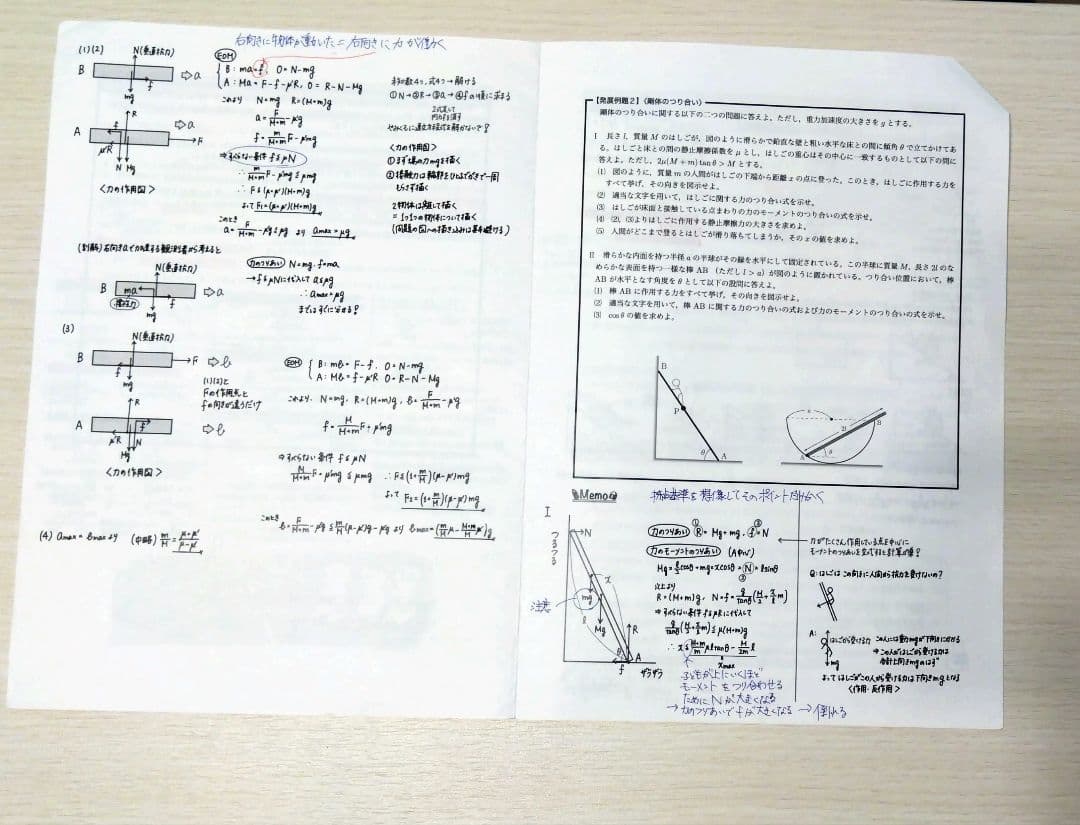 右向きに物体が動いた=右向きに力が働く
(1)(2)
N(垂直抗力)
B
⇨a
f
mg
R
A
⇨a
μ'R
N Mg
<力の作用図>
EOM
B: ma=f, 0=N-mg
A: Ma=F-f-μ'R, 0=R-N-Mg
これより N=mg R=(M+m)g
a=F/(M+m)-μ'g
f=m/(M+m)F-μ'mg
⇒すべらない条件 f≦μN
m/(M+m)F-μ'mg≦μmg
∴F≦(μ+μ')(M+m)g
よってF1=(μ+μ')(M+m)g
このとき
a=F/(M+m)-μ'g≦μg より amax=μg
未知数4つ、式4つ→解ける
①N→②R→③a→④fの順に求まる
やみくもに連立方程式を解かないで!
<力の作用図>
①まず場の力mgを描く
②接触力は輪郭をひとふでがきで一周
もらさず描く
2物体は離して描く
=1つ1つの物体について描く
(問題の図への描き込みは基本避ける)
(別解)右向きaで加速する観測者から考えると
N(垂直抗力)
B
ma
⇨a
慣性力
f
mg
力のつりあい N=mg, f=ma
→f≦μNに代入して a≦μg
∴amax=μg
まではすぐに分かる?
(3)
N(垂直抗力)
B
F
⇨b
f
mg
(1)(2)と
Fの作用点と
fの向きが違うだけ
R
A
f
⇨b
μ'R
N
Mg
<力の作用図>
EOM
B: mb=F-f, 0=N-mg
A: Mb=f-μ'R 0=R-N-Mg
これより、N=mg, R=(M+m)g, b=F/(M+m)-μ'g
f=M/(M+m)F+μ'mg
⇒すべらない条件 f≦μN
M/(M+m)F+μ'mg≦μmg
∴F≦(1+m/M)(μ-μ')mg
よって F2=(1+m/M)(μ-μ')mg
このとき b=F/(M+m)-μ'g≦m/M(μ-μ')g-μ'g より bmax=(m/M μ-(M+m)/M μ')g
(4) amax=bmaxより (中略) m/M=(μ+μ')/(μ-μ')
【発展例題2】(剛体のつり合い)
剛体のつり合いに関する以下の二つの問題に答えよ。ただし、重力加速度の大きさを g とする。
I 長さ l、質量 M のはしごが、図のように滑らかで鉛直な壁と粗い水平な床との間に傾角 θ で立てかけてあ
る。はしごと床との間の静止摩擦係数を μ とし、はしごの重心はその中心に一致するものとして以下の問に
答えよ。ただし、2μ(M+m)tanθ > M とする。
(1) 図のように、質量 m の人間がはしごの下端から距離 x の点に登った。このとき、はしごに作用する力を
すべて挙げ、その向きを図示せよ。
(2) 適当な文字を用いて、はしごに関する力のつり合い式を示せ。
(3) はしごが床面と接触している点まわりの力のモーメントのつり合いの式を示せ。
(4) (2)、(3)よりはしごに作用する静止摩擦力の大きさを求めよ。
(5) 人間がどこまで登るとはしごが滑り落ちてしまうか。その x の値を求めよ。
II 滑らかな内面を持つ半径 a の半球がその縁を水平にして固定されている。この半球に質量 M、長さ 2l のな
めらかな表面を持つ一様な棒 AB (ただし l > a) が図のように置かれている。つり合い位置において、棒
AB が水平となす角度を θ として以下の設問に答えよ。
(1) 棒 AB に作用する力をすべて挙げ、その向きを図示せよ。
(2) 適当な文字を用いて、棒 AB に関する力のつり合いの式および力のモーメントのつり合いの式を示せ。
(3) cosθ の値を求めよ。
B
P
θ
A
a
2l
B
A
θ
Memo
I
N
つるつる
x
mg
注意
l
Mg
R
θ
A
f
ザラザラ
力のつりあい ①R=Mg+mg, ③f=N
力のモーメントのつりあい (A中心)
Mg×l/2cosθ+mg×xcosθ=N×lsinθ
②
以上より
R=(M+m)g, N=f=g/tanθ(M/2+x/l m)
⇒すべらない条件f≦μRに代入して
g/tanθ(M/2+x/l m)≦μ(M+m)g
∴x≦(M+m)/m μltanθ-M/2m l
xmax
モーメントをつり合わせる
ためにNが大きくなる
→力のつりあいでfが大きくなる→倒れる
力がたくさん作用している点を中心に
モーメントのつりあいを立式すると計算が楽?
Q: はしごはこの向きに人間から抗力を受けないの?
A:
はしごから受ける力
mg
この人には重力mgが下向きにかかる
⇒この人がはしごから受ける力は
合計上向きmgのはず
よってはしごがこの人から受ける力は下向きmgとなる
<作用・反作用>